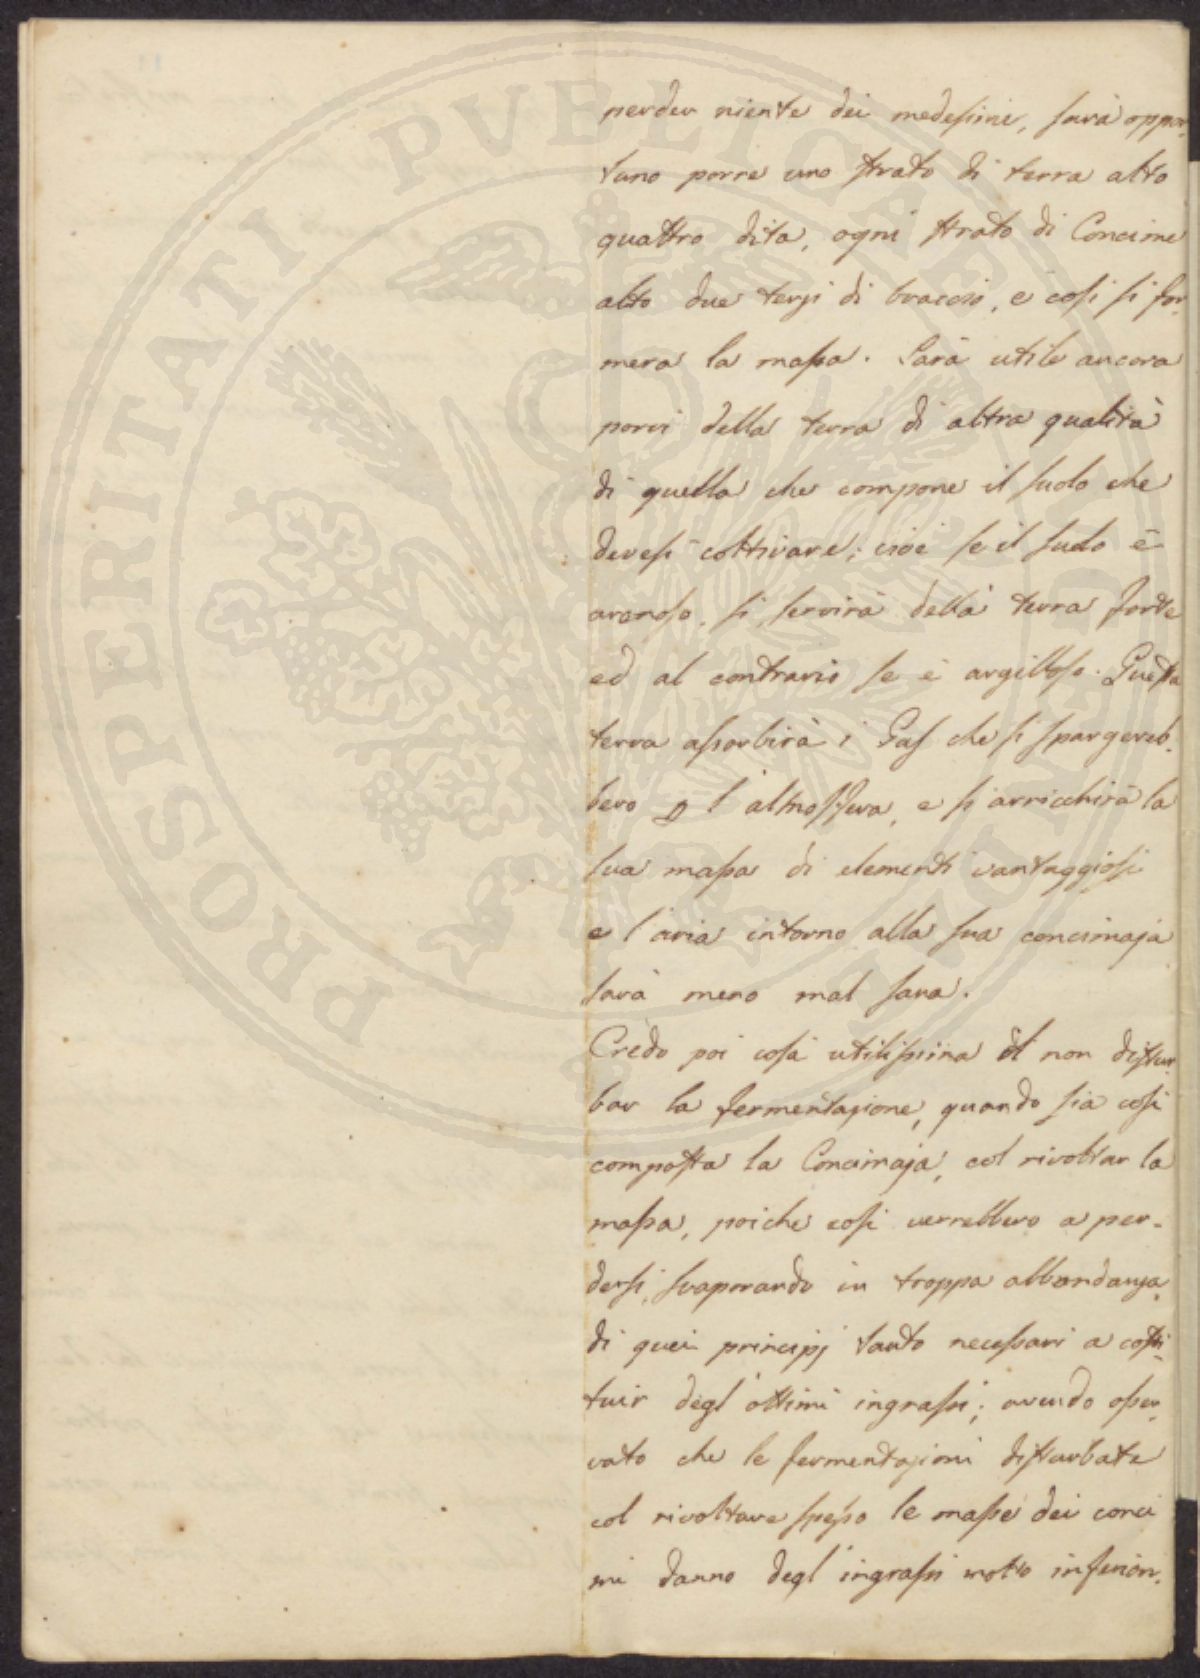 PROSPERITATI PVBLICAE AVGENDAE
perder niente dei medesimi, sarà oppor-
tuno porre uno strato di terra alto
quattro dita, ogni strato di Concime
alto due terzi di braccio, e così si for-
merà la massa. Sarà utile ancora
porvi della terra di altra qualità
di quella che compone il suolo che
devesi coltivare; cioè se il suolo è
arenoso, si servirà della terra forte
ed al contrario se è argilloso. Questa
terra assorbirà i Gas che si spargereb-
bero p l'atmosfera, e si arricchirà la
sua massa di elementi vantaggiosi
e l'aria intorno alla sua concimaja
sarà meno mal sana.
Credo poi cosa utilissima il non distur-
bar la fermentazione, quando sia così
composta la Concimaja, col rivoltar la
massa, poiche così verrebbero a per-
dersi, svaporando in troppa abbondanza,
di quei principj tanto necessari a costi-
tuir degl'ottimi ingrassi; avendo osser-
vato che le fermentazioni disturbate
col rivoltare spesso le masse dei conci
mi danno degl'ingrassi molto inferiori.